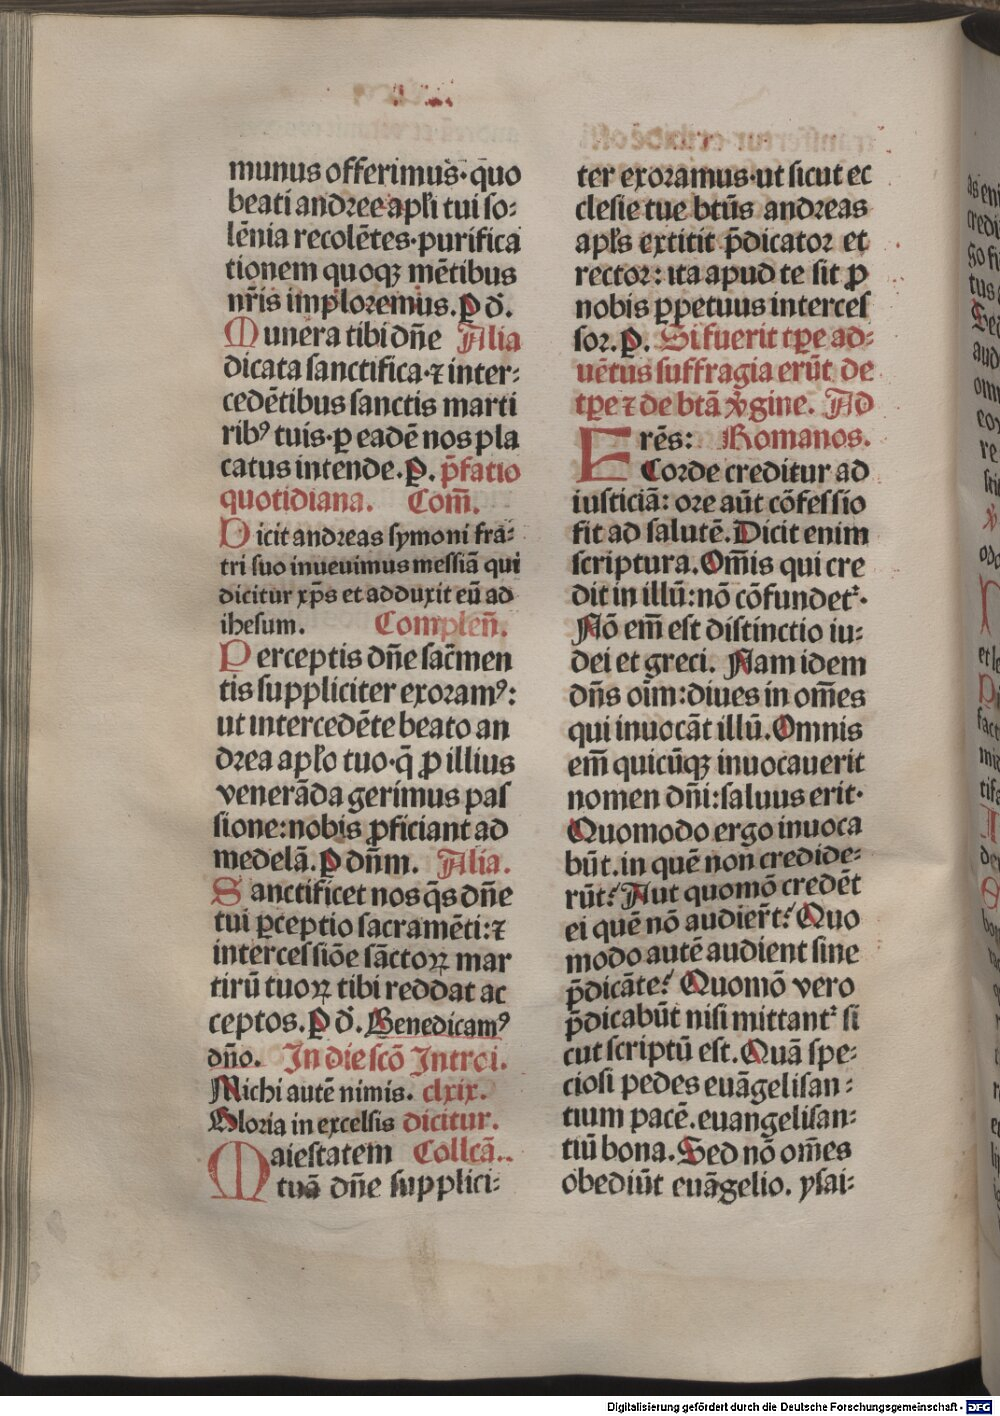 munus offerimus· q̄uo
beati andree apłi tui so-
lēnia recolētes· purifica
tionem quoqꝫ mētibus
nr̄is imploremus. ꝑ d̄.
Munera tibi dn̄e Alia
dicata sanctifica· ⁊ inter-
cedētibus sanctis marti
ribꝰ tuis· ꝑ eadē nos pla
catus intende. ꝑ. p̄fatio
quotidiana. Com̄.
Dicit andreas symoni fra-
tri suo inuenimus messiā qui
dicitur xp̄s et adduxit eū ad
ihesum. Complen̄.
Perceptis dn̄e sac̄men
tis suppliciter exoramꝰ:
ut intercedēte beato an
drea apło tuo· q̄ ꝓ illius
venerāda gerimus pas
sione: nobis ꝓficiant ad
medelā. ꝑ dn̄m. Alia.
Sanctificet nos q̄s dn̄e
tui ꝑceptio sacramēti: ⁊
intercessiōe sāctoꝝ mar
tirū tuoꝝ tibi reddat ac
ceptos. ꝑ d̄. Benedicamꝰ
dn̄o. In die scō Introi.
Michi autē nimis. clxix.
Gloria in excelsis dicitur.
Maiestatem Collcā..
tuā dn̄e supplici-
ter exoramus· ut sicut ec
clesie tue btūs andreas
apłs extitit p̄dicator et
rector: ita apud te sit ꝓ
nobis ꝑpetuus interces
sor. ꝑ. Si fuerit tꝑe ad-
uētus suffragia erūt de
tꝑe ⁊ de btā v̓gine. Ad
Frēs: Romanos.
Corde creditur ad
iusticiā: ore aūt cōfessio
fit ad salutē. Dicit enim
scriptura. Om̄is qui cre
dit in illū: nō cōfundet᷑.
Nō em̄ est distinctio iu-
dei et greci. Nam idem
dn̄s oīm: diues in om̄es
qui inuocāt illū. Omnis
em̄ quicūqꝫ inuocauerit
nomen dn̄i: saluus erit·
Quomodo ergo inuoca
būt. in quē non credide-
rūt? Aut quomō credēt
ei quē nō audier̄t? Quo
modo autē audient sine
p̄dicāte? Quomō vero
p̄dicabūt nisi mittant᷑ si
cut scriptū est. Quā spe-
ciosi pedes euāgelisan-
tium pacē. euangelisan-
tiū bona. Sed nō om̄es
obediūt euāgelio. ysai-
Digitalisierung gefördert durch die Deutsche Forschungsgemeinschaft - DFG